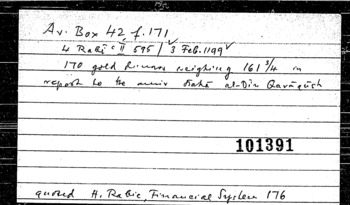 Ar. Box 42 f. 171
4 Rabīʿ II 595 / 3 Feb. 1199
170 gold dinars weighing 161 3/4 m
report to the amir Bahāʾ al-Dīn Qarāqūsh
101391
quoted H. Rabie, Financial System 176